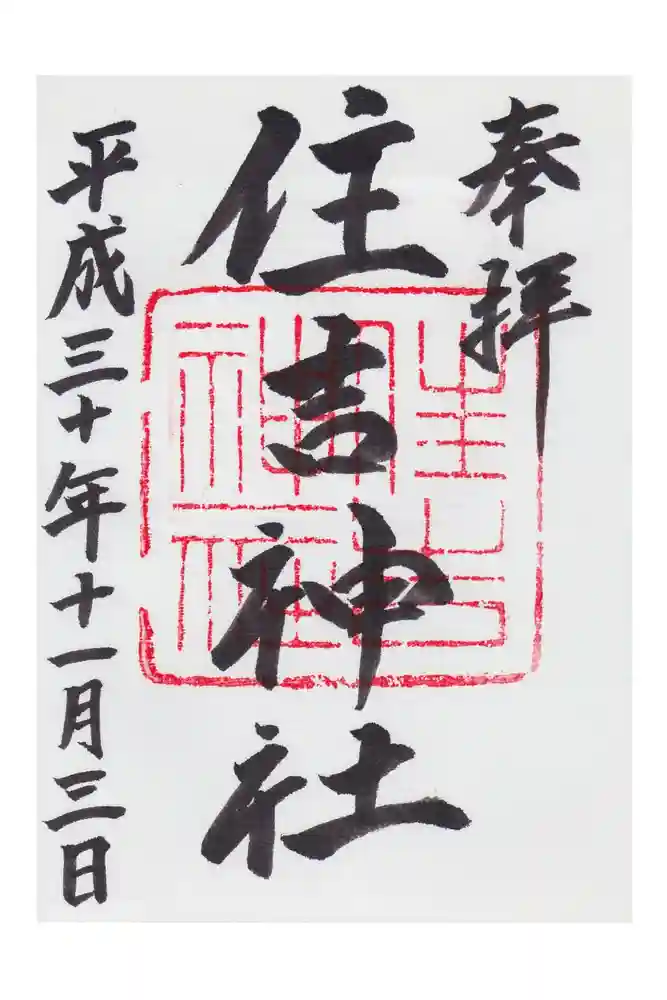 奉拝
住吉神社
平成三十年十一月三日
住吉
神社